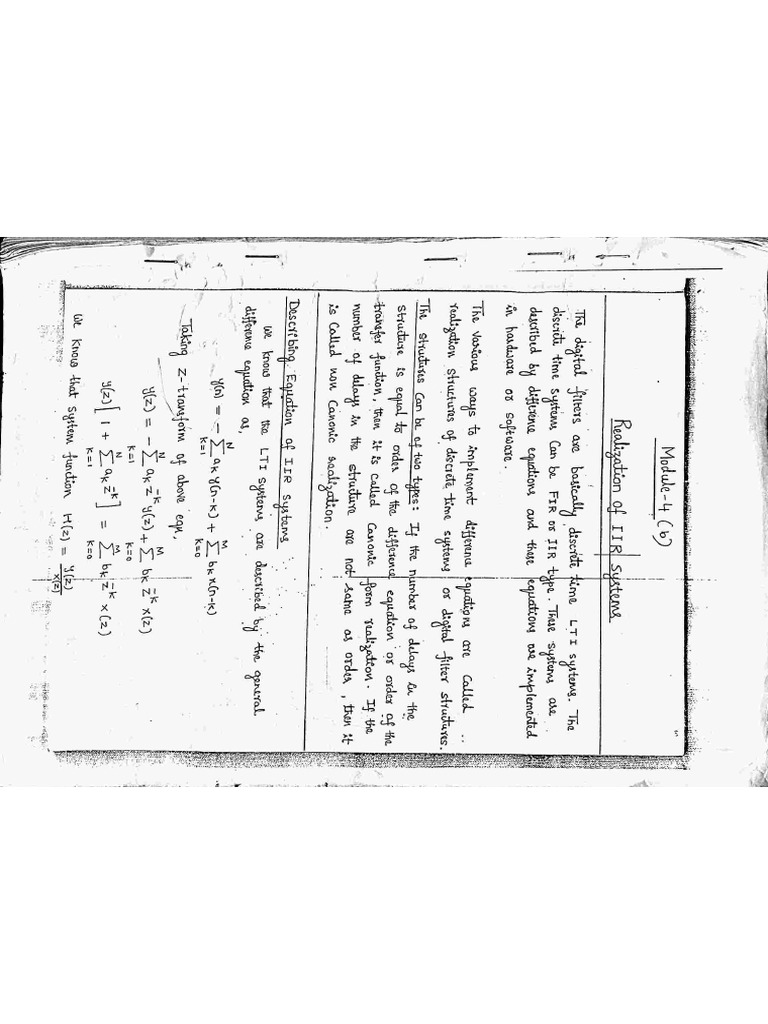 Module-4 (b)
Realization of IIR Systems
The digital filters are basically discrete time LTI systems. The
discrete time systems can be FIR or IIR type. These systems are
described by difference equations and these equations are implemented
in hardware or software.
The various ways to implement difference equations are called
realization structures of discrete time systems or digital filter structures.
The structures can be of two types: If the number of delays in the
structure is equal to order of the difference equation or order of the
transfer function, then it is called Canonic form realization. If the
number of delays in the structure are not same as order, then it
is called non Canonic realization.
Describing Equation of IIR systems
We know that the LTI systems are described by the general
difference equation as,
y(n) = - ∑_{k=1}^{N} a_k y(n-k) + ∑_{k=0}^{M} b_k x(n-k)
Taking Z-transform of above eqn,
Y(z) = - ∑_{k=1}^{N} a_k z^{-k} Y(z) + ∑_{k=0}^{M} b_k z^{-k} X(z)
Y(z) [ 1 + ∑_{k=1}^{N} a_k z^{-k} ] = ∑_{k=0}^{M} b_k z^{-k} X(z)
We know that system function H(z) = Y(z)/X(z)